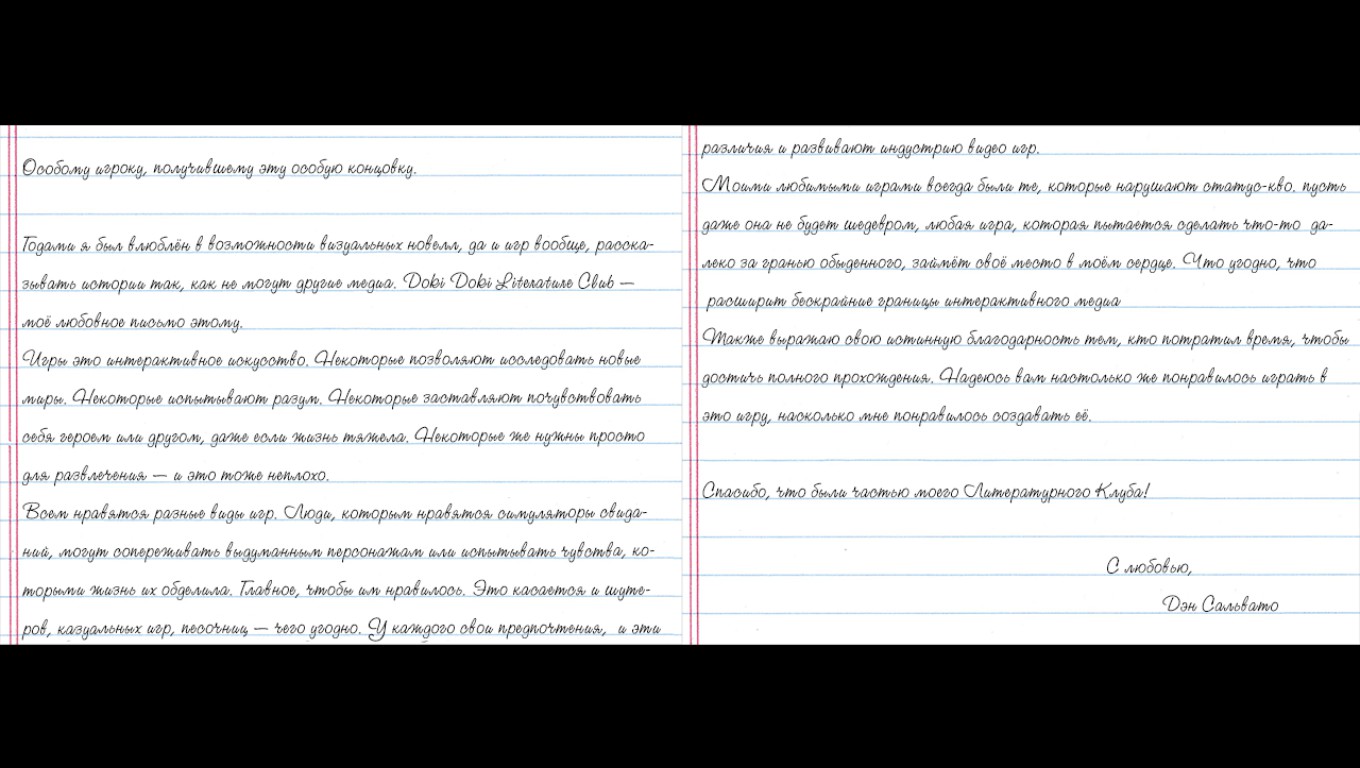 Особому игроку, получившему эту особую концовку.
Годами я был влюблён в возможности визуальных новелл, да и игр вообще, расска-
зывать истории так, как не могут другие медиа. Doki Doki Literature Club —
моё любовное письмо этому.
Игры это интерактивное искусство. Некоторые позволяют исследовать новые
миры. Некоторые испытывают разум. Некоторые заставляют почувствовать
себя героем или другом, даже если жизнь тяжела. Некоторые же нужны просто
для развлечения — и это тоже неплохо.
Всем нравятся разные виды игр. Люди, которым нравятся симуляторы свида-
ний, могут сопереживать выдуманным персонажам или испытывать чувства, ко-
торыми жизнь их обделила. Главное, чтобы им нравилось. Это касается и шуте-
ров, казуальных игр, песочниц — чего угодно. У каждого свои предпочтения, и эти
различия и развивают индустрию видео игр.
Моими любимыми играми всегда были те, которые нарушают статус-кво. пусть
даже она не будет шедевром, любая игра, которая пытается сделать что-то да-
леко за гранью обыденного, займёт своё место в моём сердце. Что угодно, что
расширит бескрайние границы интерактивного медиа
Также выражаю свою истинную благодарность тем, кто потратил время, чтобы
достичь полного прохождения. Надеюсь вам настолько же понравилось играть в
это игру, насколько мне понравилось создавать её.
Спасибо, что были частью моего Литературного Клуба!
С любовью,
Дэн Сальвато